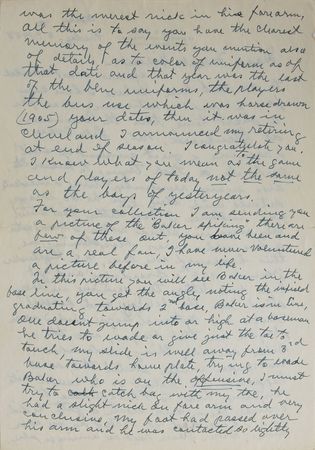 was the merest nick in his forearm,
all this is to say you have the clearest
memory of the events you mention also
of details, as to color of uniforms as of
that date and that year was the last
of the blue uniforms, the players
the bus use which was horse drawn
(1905) your dates, then it was in
Cleveland I announced my retiring
at end of season. I congratulate you.
I know what you mean as the game
and players of today not the same
as the boys of yesteryears.
For your collection I am sending you
a picture of the Baker spiking, there are
few of these out, you been and
are a real fan, I have never volunteered
a picture before in my life.
In this picture you will see Baker in the
base line, you get the angle, noting the infield
graduating towards 2nd base, Baker is in line,
one doesnt jump into or high at a baseman
he tries to evade or give just the toe to
touch, my slide is well away from 3rd
base towards home plate, trying to evade
Baker who is on the offensive, I must
try to catch bag with my toe, he
had a slight nick on forearm and very
conclusive, my foot had passed over
his arm and he was contacted so lightly